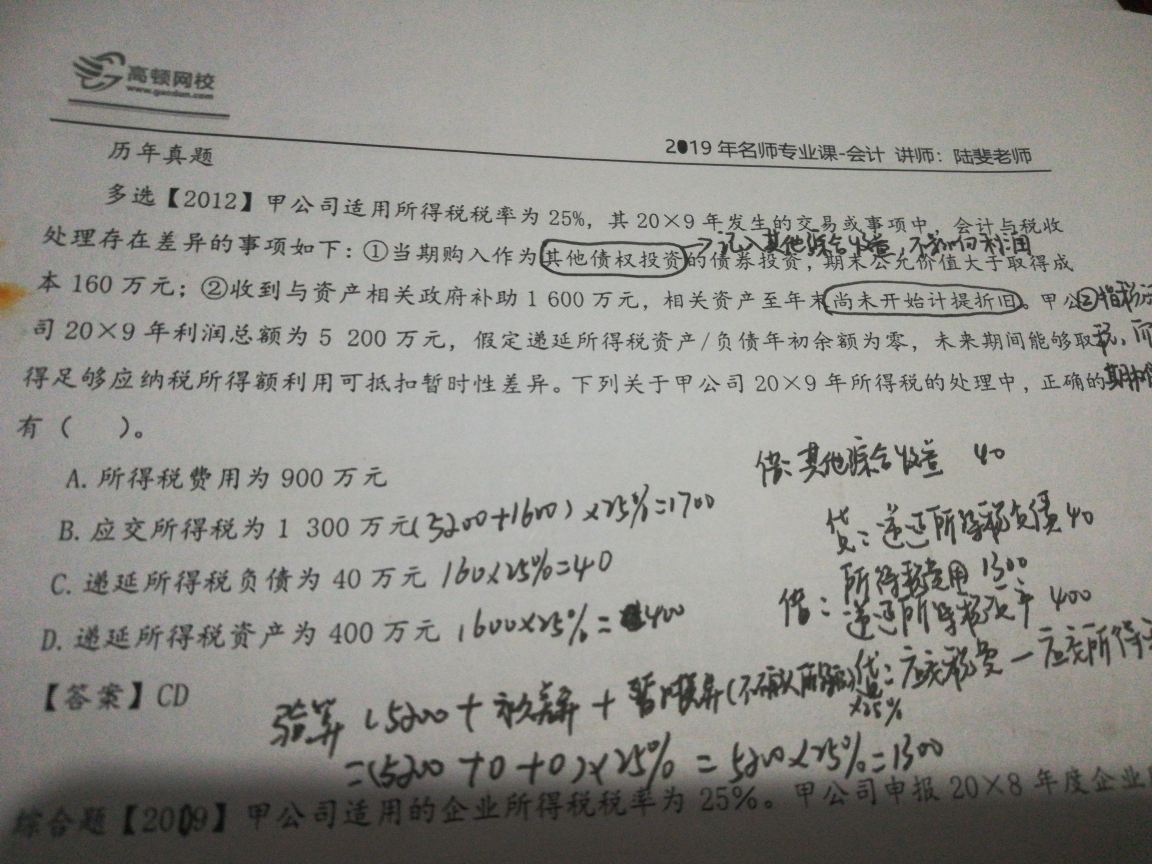 高顿网校
www.gaodun.com
2019年名师专业课-会计 讲师：陆斐老师
历年真题
多选【2012】甲公司适用所得税税率为25%，其20×9年发生的交易或事项中，会计与税收
→记入其他综合收益，不影响利润
处理存在差异的事项如下：①当期购入作为其他债权投资的债券投资，期末公允价值大于取得成
本160万元；②收到与资产相关政府补助1 600万元，相关资产至年末尚未开始计提折旧。甲公
司20×9年利润总额为5 200万元，假定递延所得税资产/负债年初余额为零，未来期间能够取
得足够应纳税所得额利用可抵扣暂时性差异。下列关于甲公司20×9年所得税的处理中，正确的
有（ ）。
A.所得税费用为900万元
借：其他综合收益 40
B.应交所得税为1 300万元(5200+1600)×25%=1700
贷：递延所得税负债40
C.递延所得税负债为40万元 160×25%=40
所得税费用 1300
借：递延所得税资产 400
D.递延所得税资产为400万元 1600×25%=400
贷：应交税费—应交所得
【答案】CD
验算 (5200+永久差异+暂时性差异(不确认
×25%
=(5200+0+0)×25%=5200×25%=1300
综合题【2019】甲公司适用的企业所得税税率为25%。甲公司申报20×8年度企业